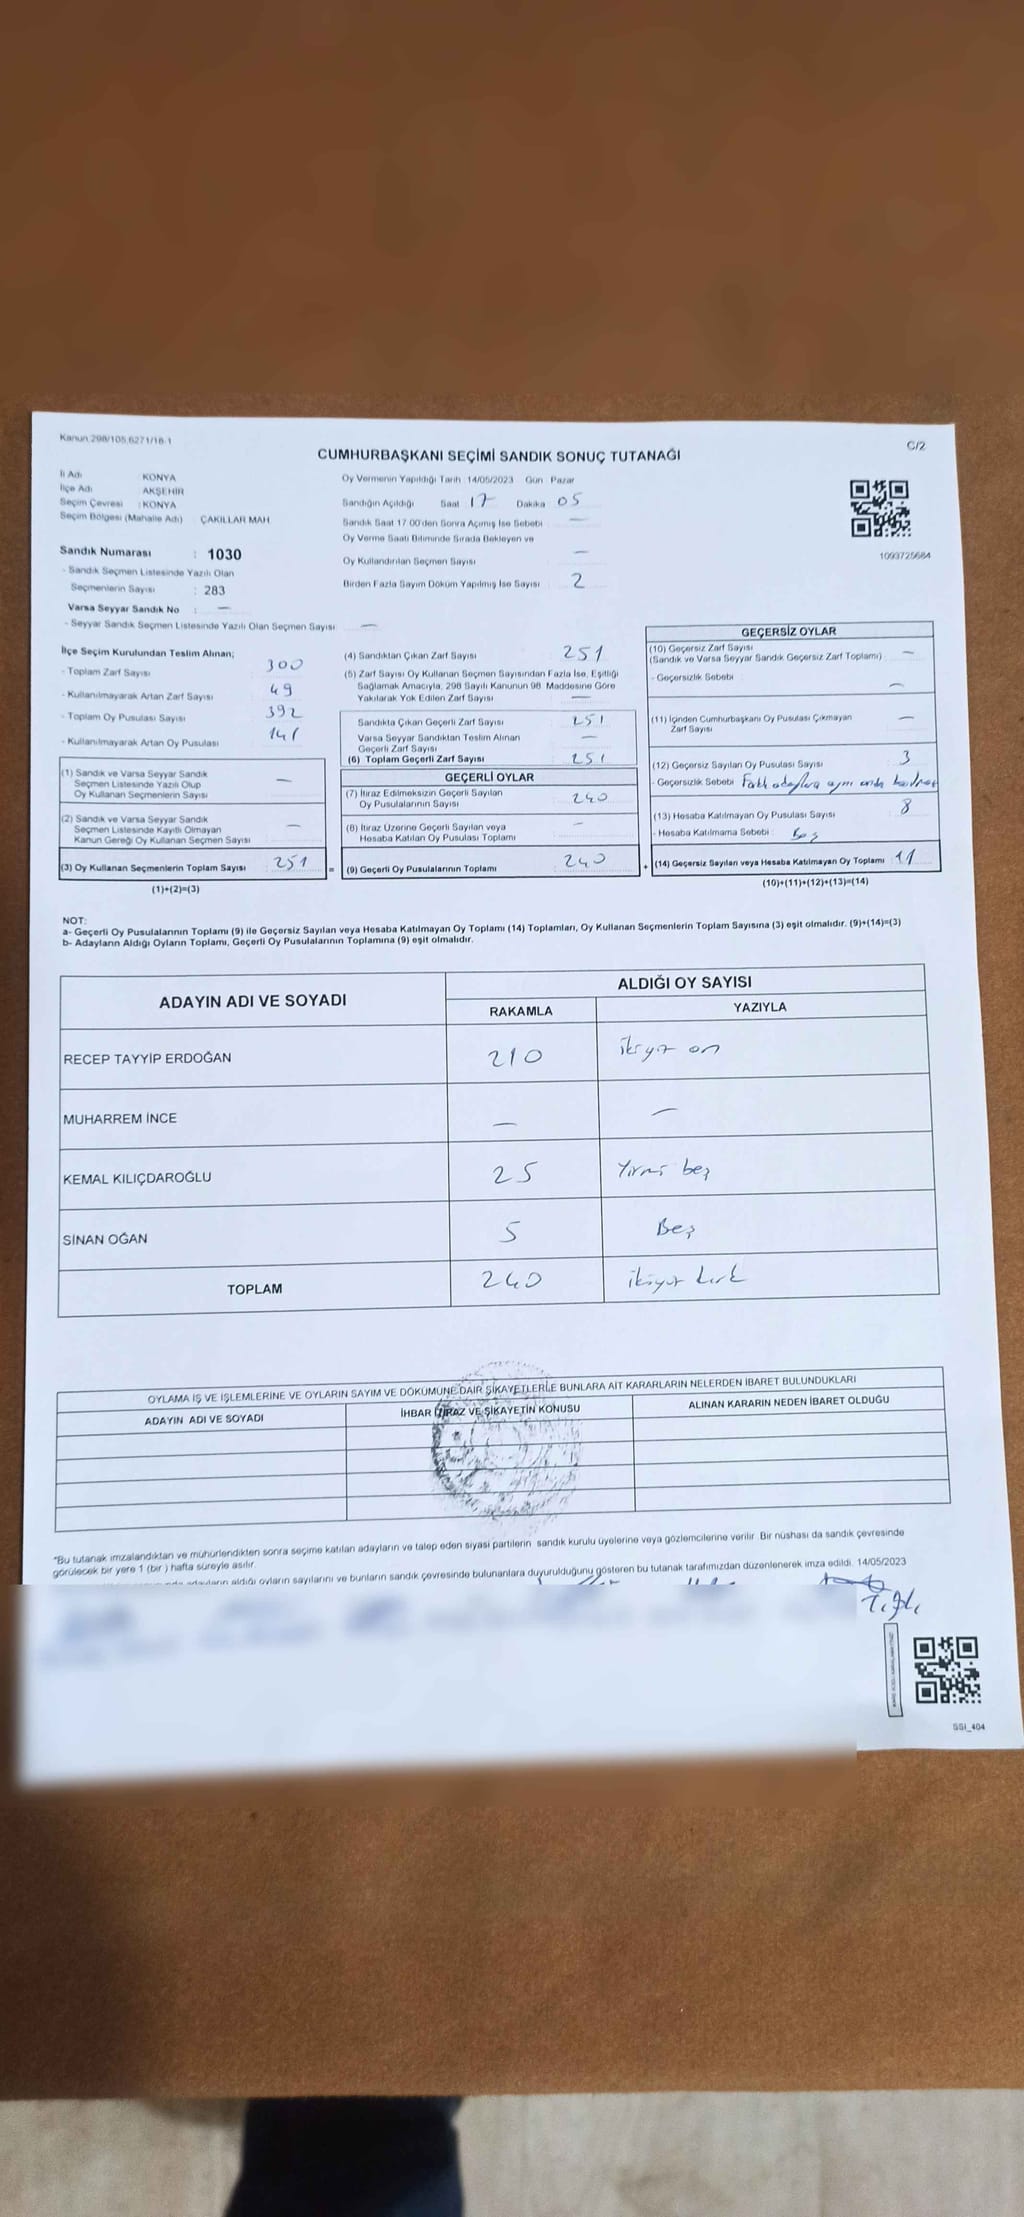 Kanun 298/105,6271/16-1
C/2
CUMHURBAŞKANI SEÇİMİ SANDIK SONUÇ TUTANAĞI
İl Adı KONYA
İlçe Adı AKŞEHİR
Seçim Çevresi : KONYA
Seçim Bölgesi (Mahalle Adı) ÇAKILLAR MAH
Sandık Numarası : 1030
- Sandık Seçmen Listesinde Yazılı Olan
Seçmenlerin Sayısı : 283
Varsa Seyyar Sandık No : —
- Seyyar Sandık Seçmen Listesinde Yazılı Olan Seçmen Sayısı —
Oy Vermenin Yapıldığı Tarih 14/05/2023 Gün Pazar
Sandığın Açıldığı Saat 17 Dakika 05
Sandık Saat 17 00'den Sonra Açımış İse Sebebi —
Oy Verme Saati Bitiminde Sırada Bekleyen ve
Oy Kullandırılan Seçmen Sayısı —
Birden Fazla Sayım Döküm Yapılmış İse Sayısı 2
1093725684
İlçe Seçim Kurulundan Teslim Alınan;
- Toplam Zarf Sayısı 300
- Kullanılmayarak Artan Zarf Sayısı 49
- Toplam Oy Pusulası Sayısı 392
- Kullanılmayarak Artan Oy Pusulası 141
(1) Sandık ve Varsa Seyyar Sandık
Seçmen Listesinde Yazılı Olup
Oy Kullanan Seçmenlerin Sayısı —
(2) Sandık ve Varsa Seyyar Sandık
Seçmen Listesinde Kayıtlı Olmayan
Kanun Gereği Oy Kullanan Seçmen Sayısı —
(3) Oy Kullanan Seçmenlerin Toplam Sayısı 251 =
(1)+(2)=(3)
(4) Sandıktan Çıkan Zarf Sayısı 251
(5) Zarf Sayısı Oy Kullanan Seçmen Sayısından Fazla İse, Eşitliği
Sağlamak Amacıyla, 298 Sayılı Kanunun 98. Maddesine Göre
Yakılarak Yok Edilen Zarf Sayısı —
Sandıkta Çıkan Geçerli Zarf Sayısı 251
Varsa Seyyar Sandıktan Teslim Alınan
Geçerli Zarf Sayısı —
(6) Toplam Geçerli Zarf Sayısı 251
GEÇERLİ OYLAR
(7) İtiraz Edilmeksizin Geçerli Sayılan
Oy Pusulalarının Sayısı 240
(8) İtiraz Üzerine Geçerli Sayılan veya
Hesaba Katılan Oy Pusulası Toplamı —
(9) Geçerli Oy Pusulalarının Toplamı 240 +
GEÇERSİZ OYLAR
(10) Geçersiz Zarf Sayısı
(Sandık ve Varsa Seyyar Sandık Geçersiz Zarf Toplamı) —
- Geçersizlik Sebebi —
(11) İçinden Cumhurbaşkanı Oy Pusulası Çıkmayan
Zarf Sayısı —
(12) Geçersiz Sayılan Oy Pusulası Sayısı 3
- Geçersizlik Sebebi Farklı adaylara aynı anda
(13) Hesaba Katılmayan Oy Pusulası Sayısı 8
- Hesaba Katılmama Sebebi Boş
(14) Geçersiz Sayılan veya Hesaba Katılmayan Oy Toplamı 11
(10)+(11)+(12)+(13)=(14)
NOT:
a- Geçerli Oy Pusulalarının Toplamı (9) ile Geçersiz Sayılan veya Hesaba Katılmayan Oy Toplamı (14) Toplamları, Oy Kullanan Seçmenlerin Toplam Sayısına (3) eşit olmalıdır. (9)+(14)=(3)
b- Adayların Aldığı Oyların Toplamı, Geçerli Oy Pusulalarının Toplamına (9) eşit olmalıdır.
ADAYIN ADI VE SOYADI ALDIĞI OY SAYISI
RAKAMLA YAZIYLA
RECEP TAYYİP ERDOĞAN 210 ikiyüz on
MUHARREM İNCE — —
KEMAL KILIÇDAROĞLU 25 Yirmi beş
SİNAN OĞAN 5 Beş
TOPLAM 240 ikiyüz kırk
OYLAMA İŞ VE İŞLEMLERİNE VE OYLARIN SAYIM VE DÖKÜMÜNE DAİR ŞİKAYETLERLE BUNLARA AİT KARARLARIN NELERDEN İBARET BULUNDUKLARI
ADAYIN ADI VE SOYADI İHBAR İTİRAZ VE ŞİKAYETİN KONUSU ALINAN KARARIN NEDEN İBARET OLDUĞU
*Bu tutanak imzalandıktan ve mühürlendikten sonra seçime katılan adayların ve talep eden siyasi partilerin sandık kurulu üyelerine veya gözlemcilerine verilir. Bir nüshası da sandık çevresinde
görülecek bir yere 1 (bir ) hafta süreyle asılır.
adayların aldığı oyların sayılarını ve bunların sandık çevresinde bulunanlara duyurulduğunu gösteren bu tutanak tarafımızdan düzenlenerek imza edildi. 14/05/2023
SSI_404